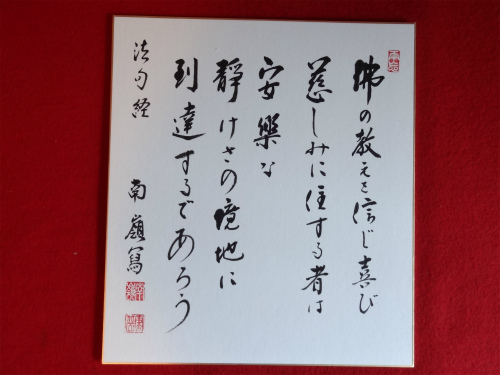 佛の教えを信じ喜び
慈しみに住する者は
安樂な
靜けさの境地に
到達するであろう
法句経
南嶺寫